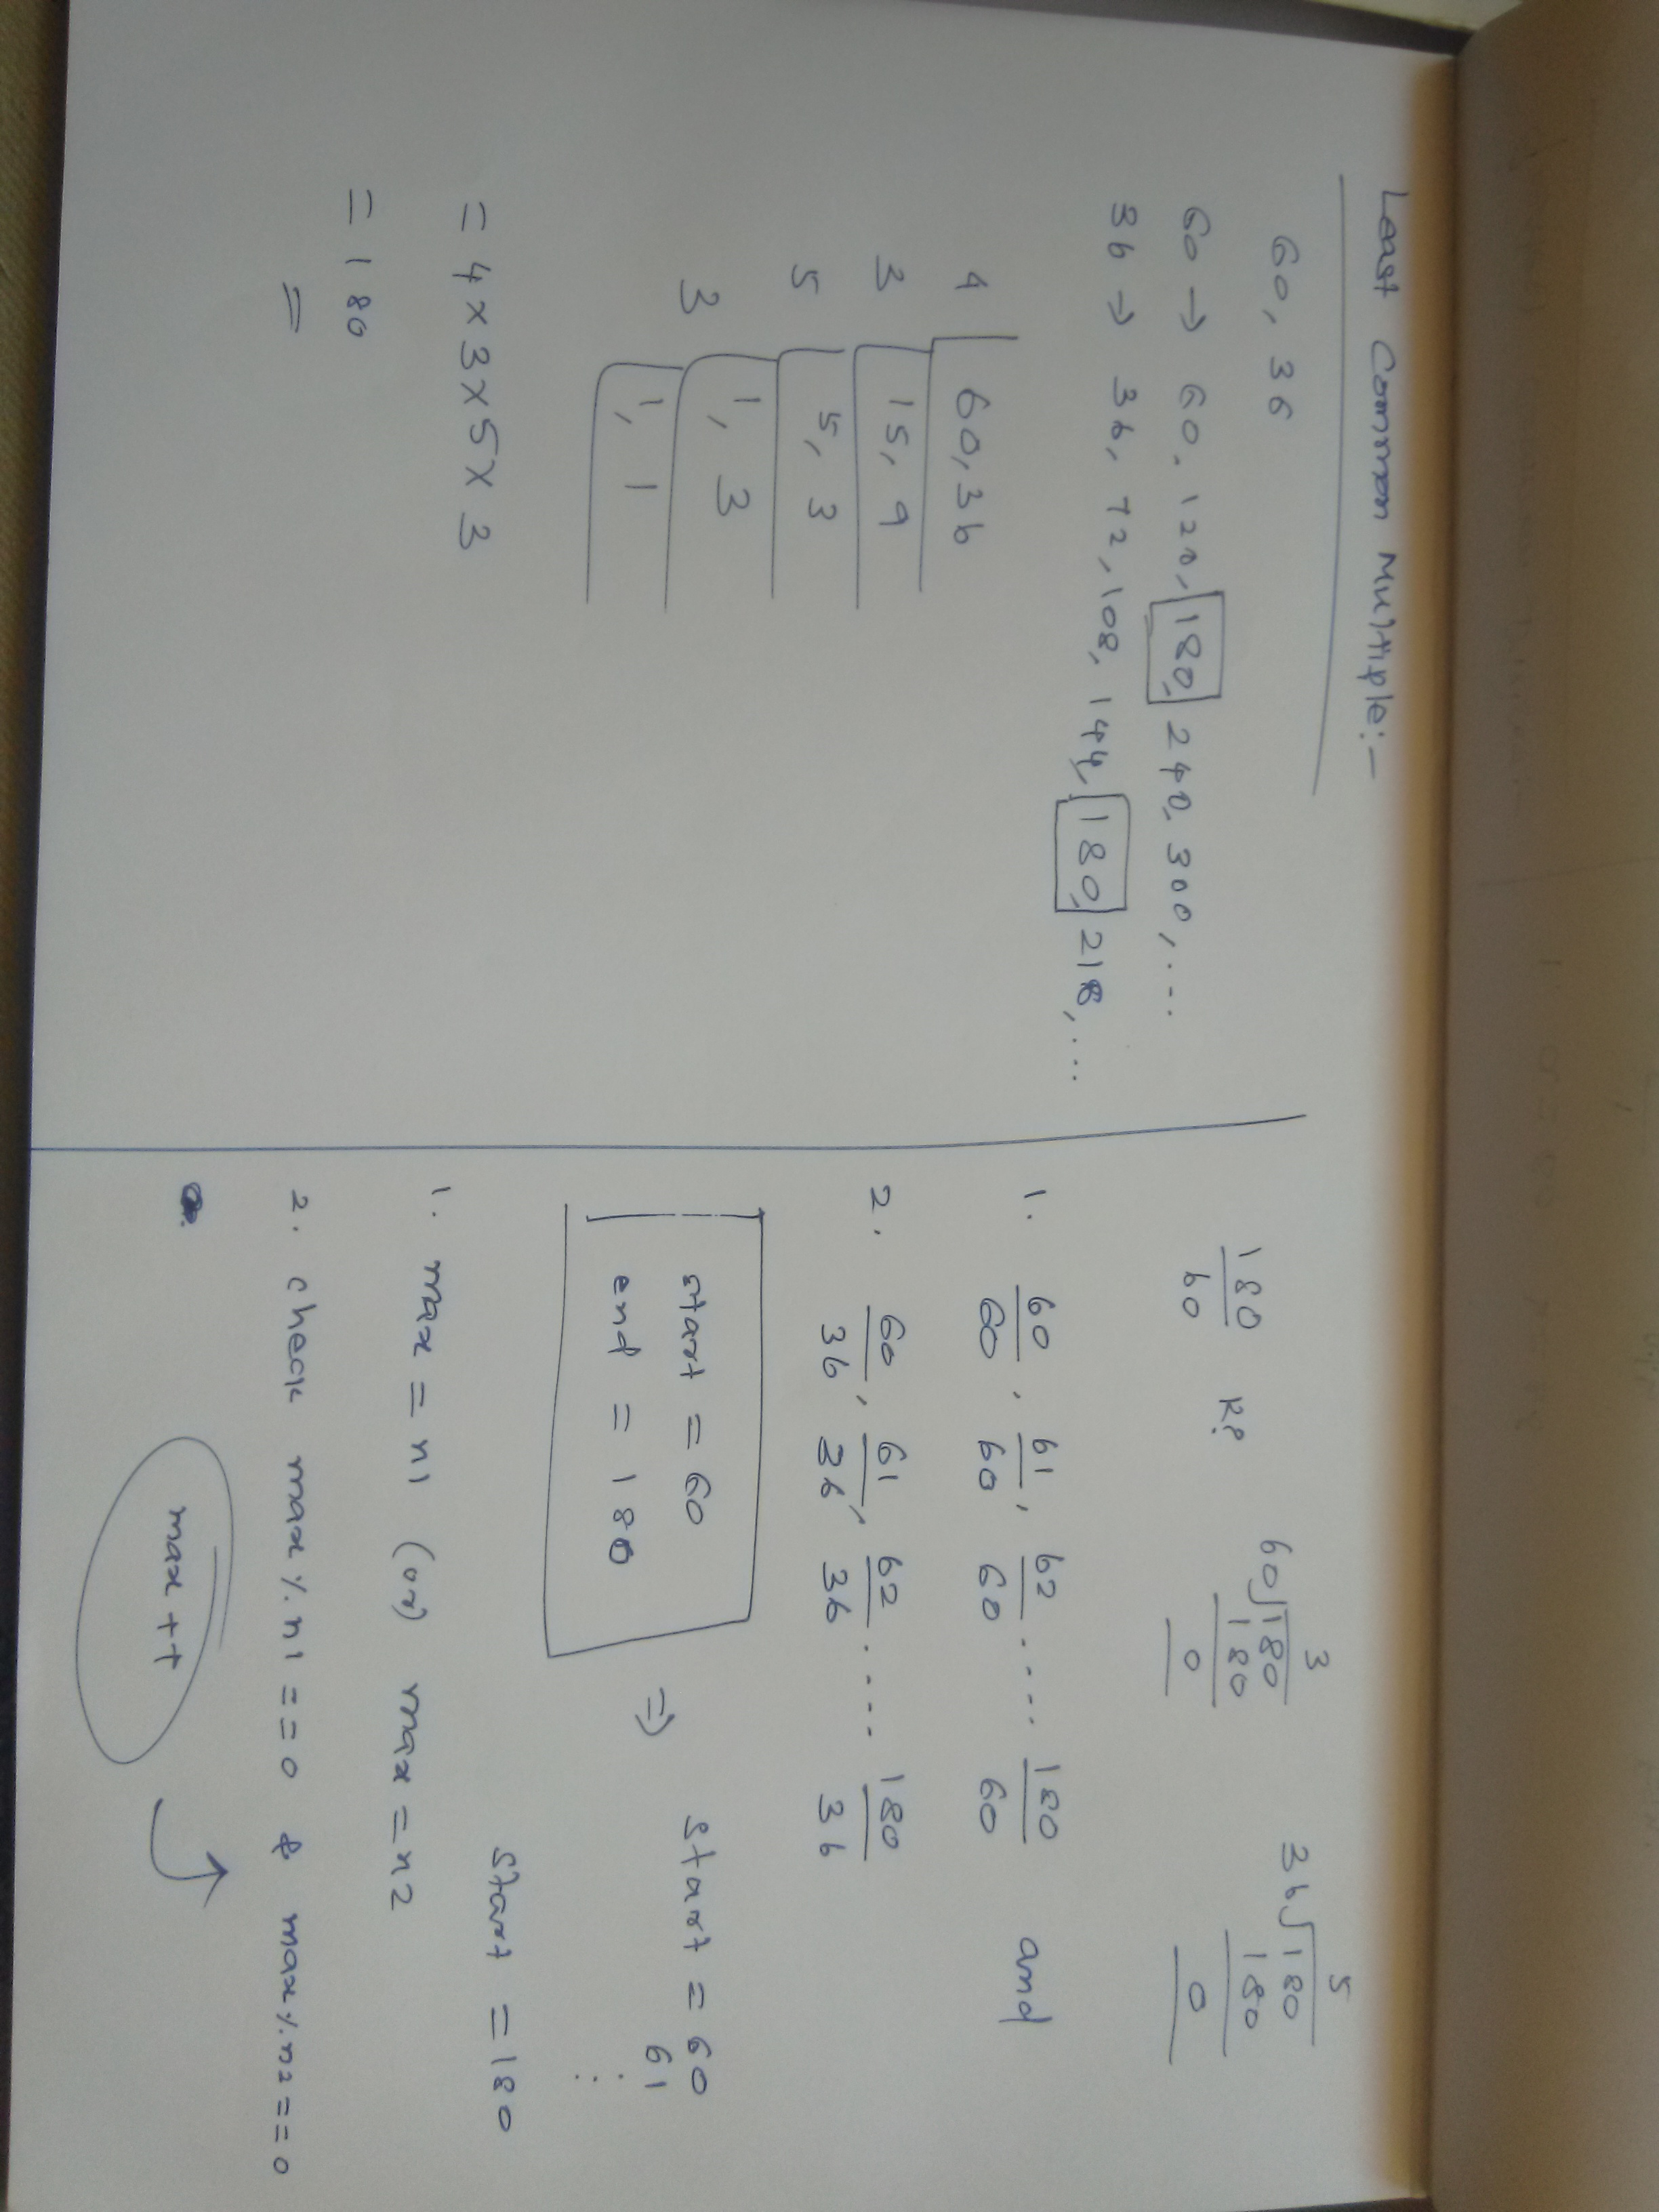 Least Common Multiple:-
60, 36
60 → 60, 120, 180, 240, 300, ...
36 → 36, 72, 108, 144, 180, 216, ...
4 | 60, 36
3 | 15, 9
5 | 5, 3
3 | 1, 3
1, 1
= 4 × 3 × 5 × 3
= 180
180/60 R?
3
60 180
180
0
5
36 180
180
0
1. 60/60, 61/60, 62/60 .... 180/60 and
2. 60/36, 61/36, 62/36 .... 180/36
start = 60
end = 180
⇒ start = 60
61
:
start = 180
1. max = n1 (or) max = n2
2. check max % n1 == 0 & max % n2 == 0
max ++